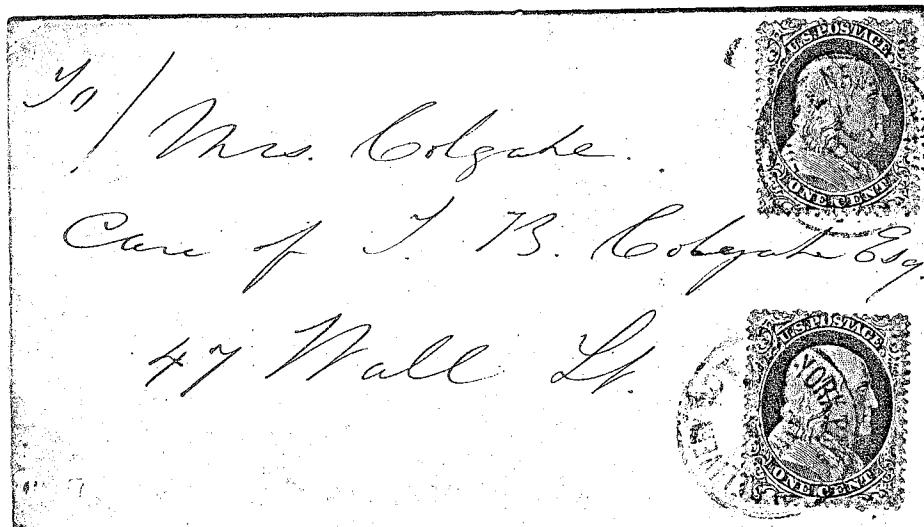 To/
Mrs. Colgate.
Care of J. B. Colgate Esq.
47 Wall St.
U.S. POSTAGE
ONE CENT
U.S. POSTAGE
YORK
ONE CENT